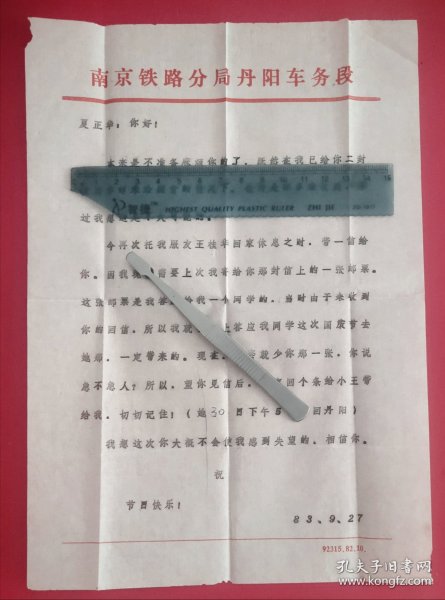 南京铁路分局丹阳车务段
夏正华：你好！
本来是不准备麻烦你的了。既然在我已给你二封
HIGHEST QUALITY PLASTIC RULER ZHI JH
过我
今再次托我朋友王桂华回家休息之时，带一信给
你。因我 需要上次我 给你那封信上的一张邮票。
这张邮票是我答 给我一个同学的。当时由于未收到
你的回信。所以我就 上答应我同学这次国庆节去
她那，一定带来的。现在， 就少你那一张，你说
急不急人？所以，望你见信后， 回个条给小王带
给我。切切记住！（她30日下午5 回丹阳）
我想这次你大概不会使我感到失望的。相信你。
祝
节日快乐！
83、9、27
92315.82.10.
孔夫子旧书网
www.kongfz.com